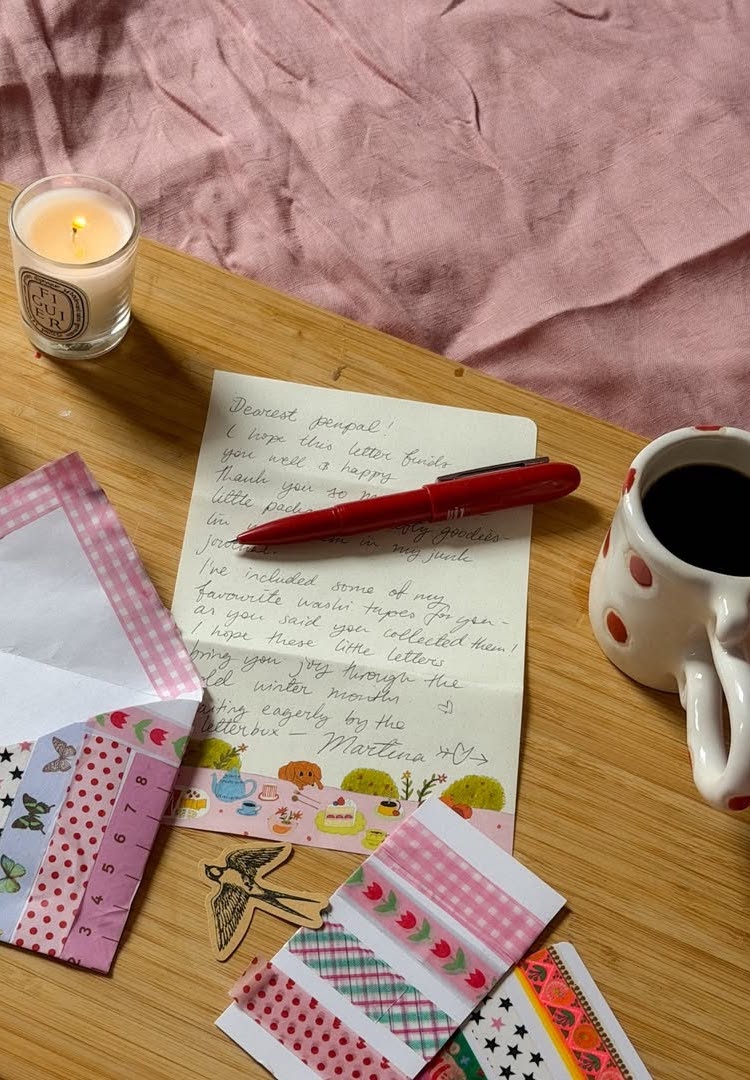 FI
GUI
ER
Dearest penpal!
I hope this letter finds
you well & happy
thank you so
little goodies-
in my junk
journal.
I've included some of my
favourite washi tapes for you -
as you said you collected them!
I hope these little letters
bring you joy through the
old winter months.
aiting eagerly by the
letterbox - Martina
8
7
6
5
4
3
2